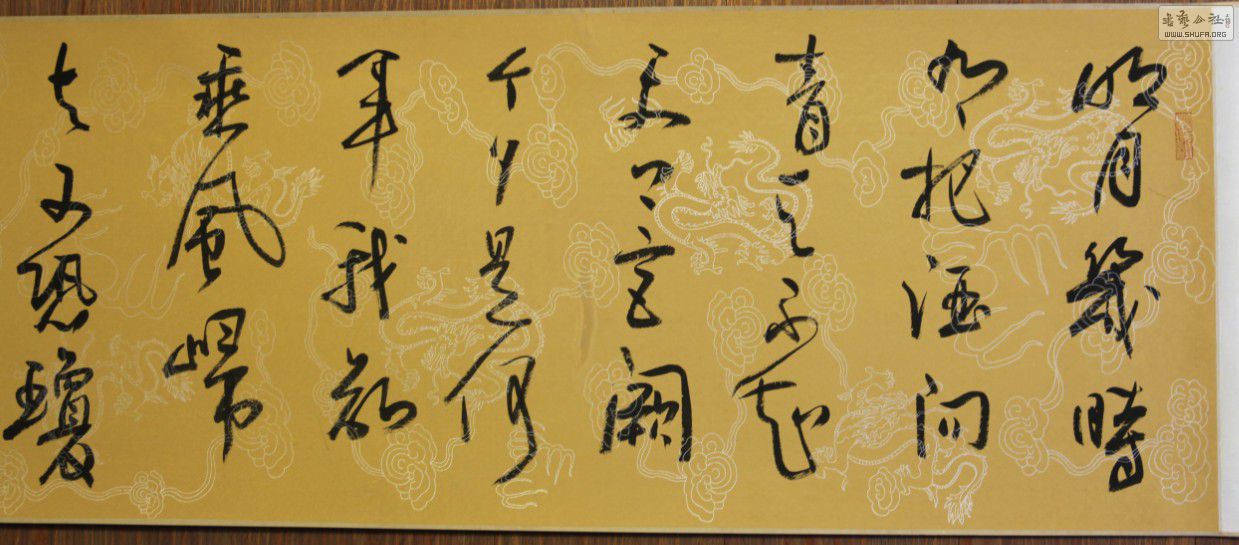 明月幾時
有把酒問
青天不知
天上宮闕
今夕是何
年我欲
乘風歸
去又恐瓊
書藝公社
WWW.SHUFA.ORG